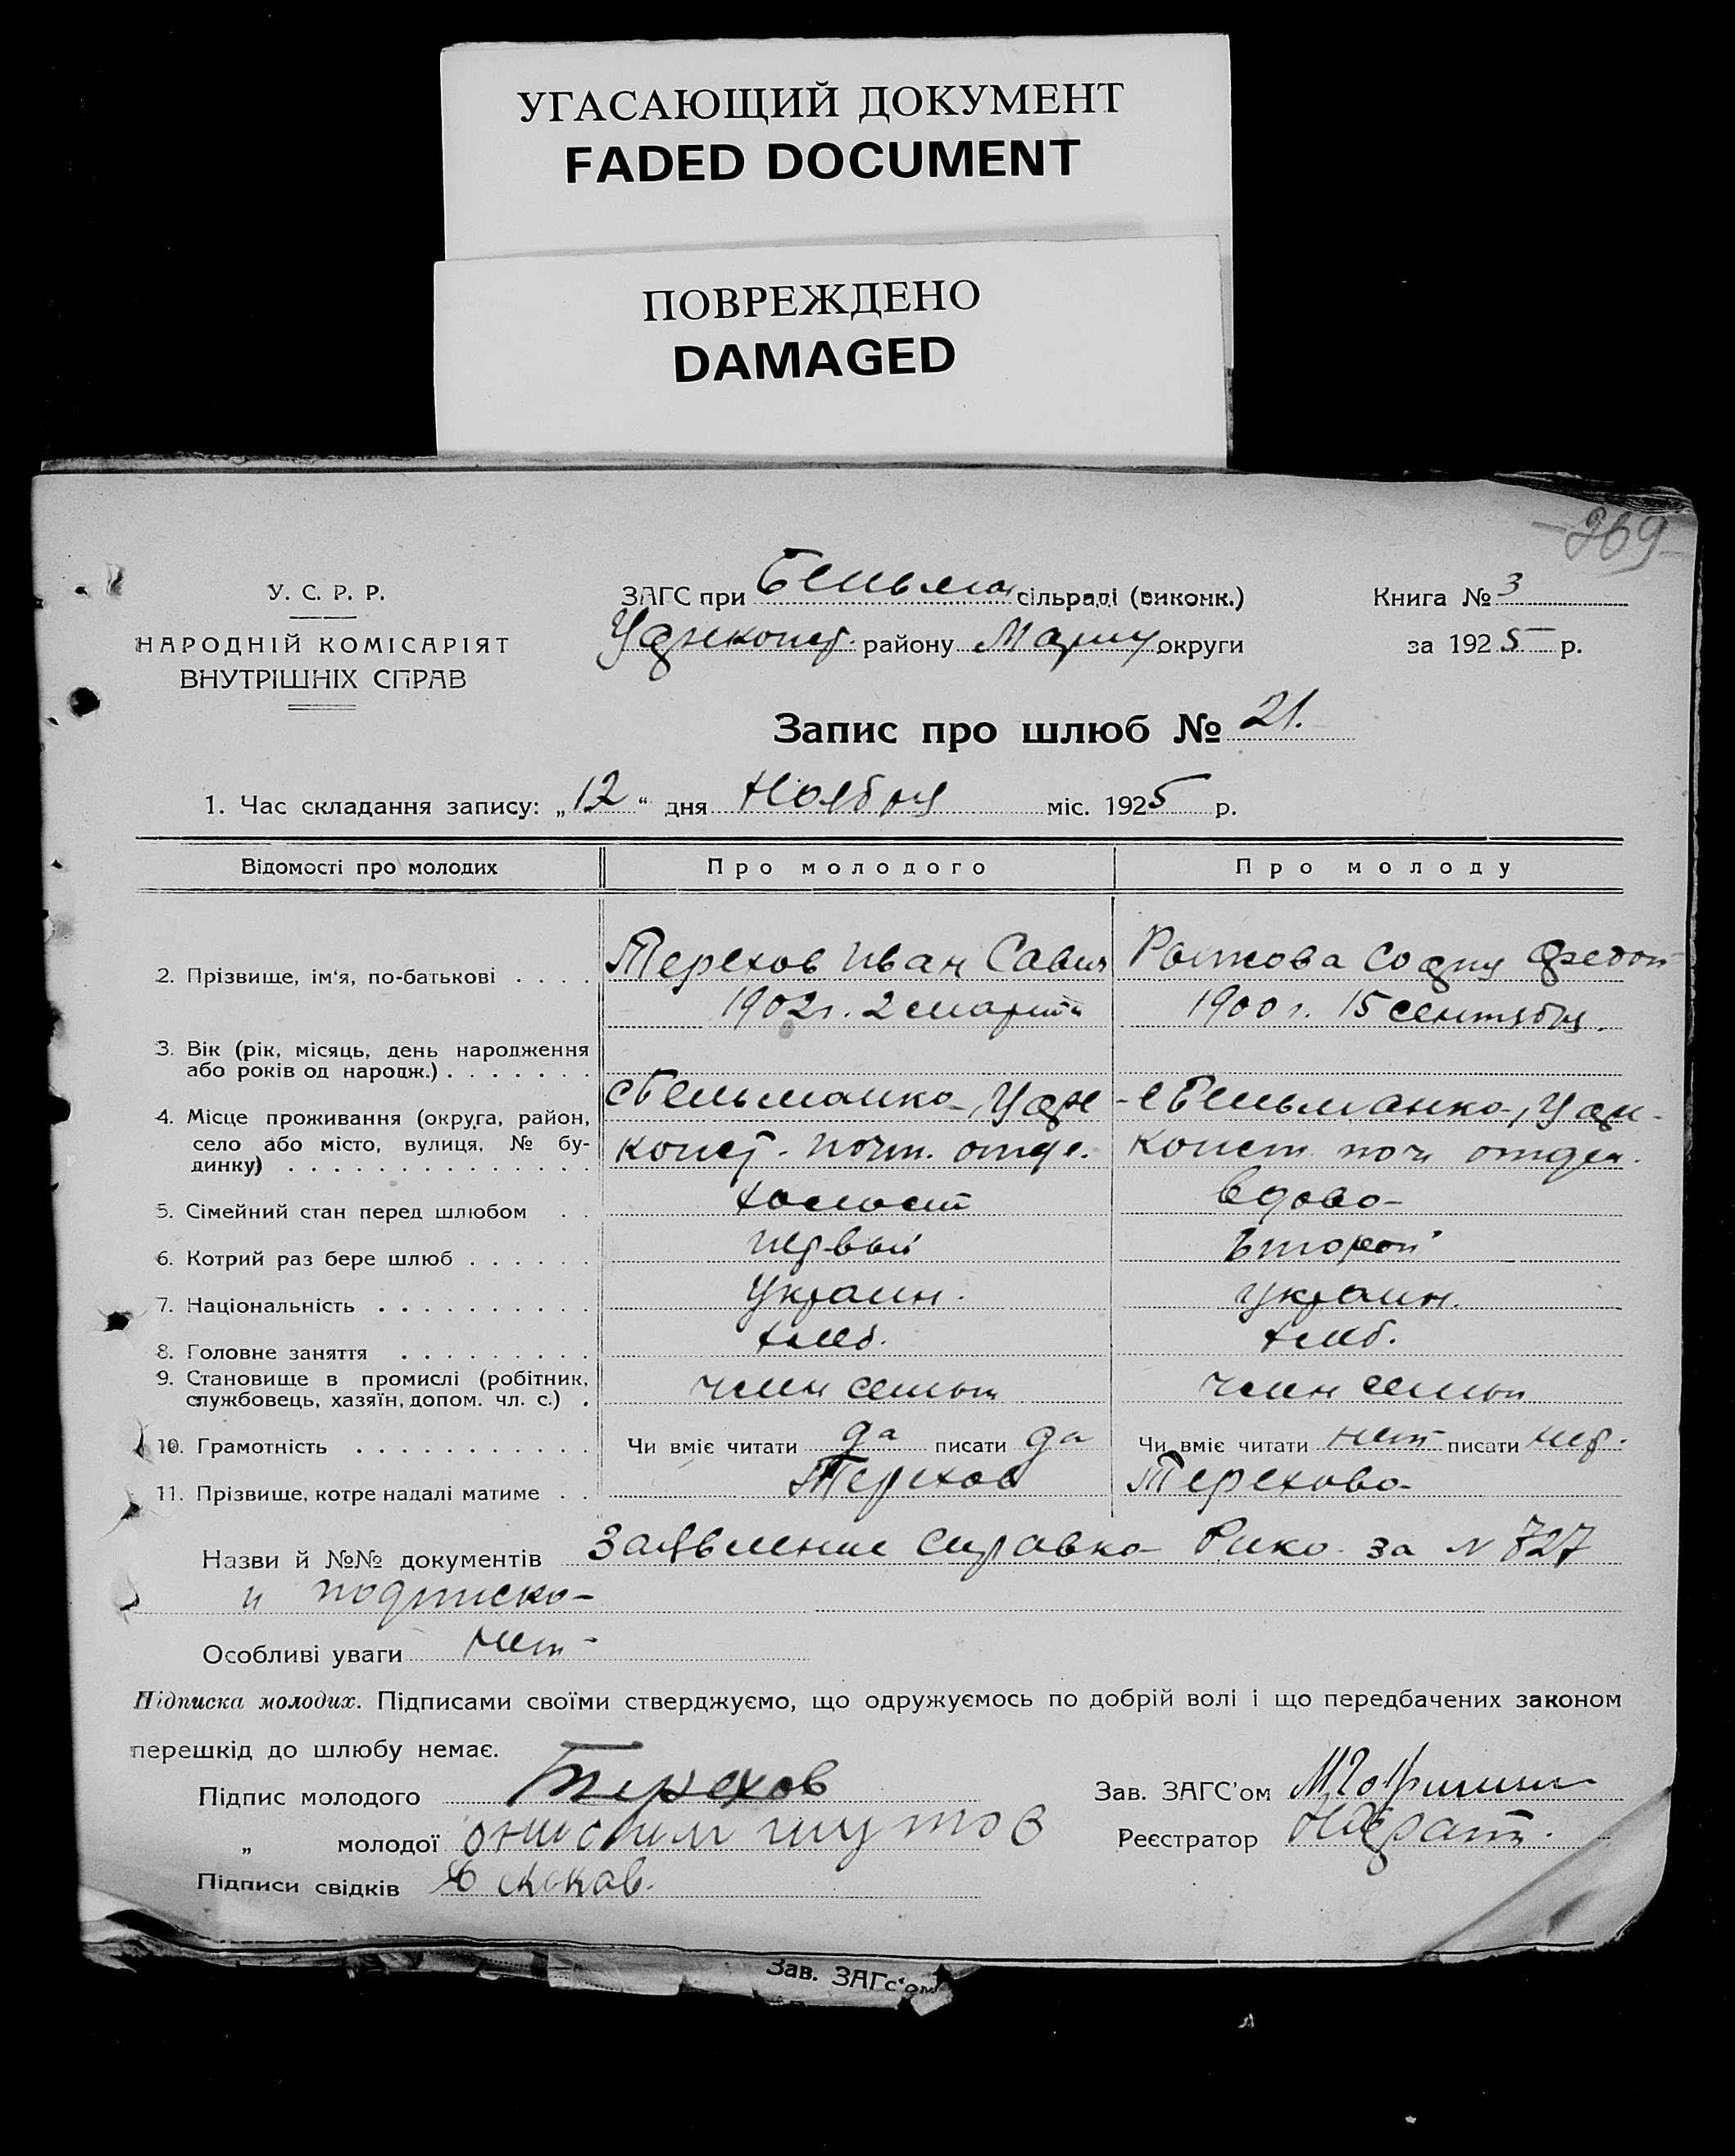 УГАСАЮЩИЙ ДОКУМЕНТ
FADED DOCUMENT
ПОВРЕЖДЕНО
DAMAGED
369
У. С. Р. Р.
НАРОДНІЙ КОМІСАРІЯТ
ВНУТРІШНІХ СПРАВ
ЗАГС при Бельман сільраді (виконк.)
района Мариу округи
Книга № 3
за 1925 р.
Запис про шлюб № 21.
1. Час складання запису: „12“ дня Ноября міс. 1925 р.
Відомості про молодих Про молодого Про молоду
2. Прізвище, ім'я, по-батькові . . . . Терехов Иван Савел Рыжова София Федот
1902 г. 2 марта 1900 г. 15 сентября.
3. Вік (рік, місяць, день народження
або років од народж.) . . . . . . .
4. Місце проживання (округа, район,
село або місто, вулиця, № бу-
динку) . . . . . . . . . . . . . .
с Бельманка, Цар е Бельманка, Цар
конст. почт. отде. конст поч отдел.
5. Сімейний стан перед шлюбом . . холост вдова
6. Котрий раз бере шлюб . . . . . . первый второй
7. Національність . . . . . . . . . . Украин. Украин.
8. Головне заняття . . . . . . . . . хлеб. хлеб.
9. Становище в промислі (робітник,
службовець, хазяїн, допом. чл. с.) . член семьи член семьи
10. Грамотність . . . . . . . . . . . Чи вміє читати да писати да Чи вміє читати нет писати нет.
11. Прізвище, котре надалі матиме . . Терехов Терехова
Назви й №№ документів Заявление справка Рика за № 727
и подписка
Особливі уваги нет
Підписка молодих. Підписами своїми стверджуємо, що одружуємось по добрій волі і що передбачених законом
перешкід до шлюбу немає.
Підпис молодого Терехов
„ молодої
Підписи свідків
Зав. ЗАГС'ом
Реєстратор
Зав. ЗАГС'ом